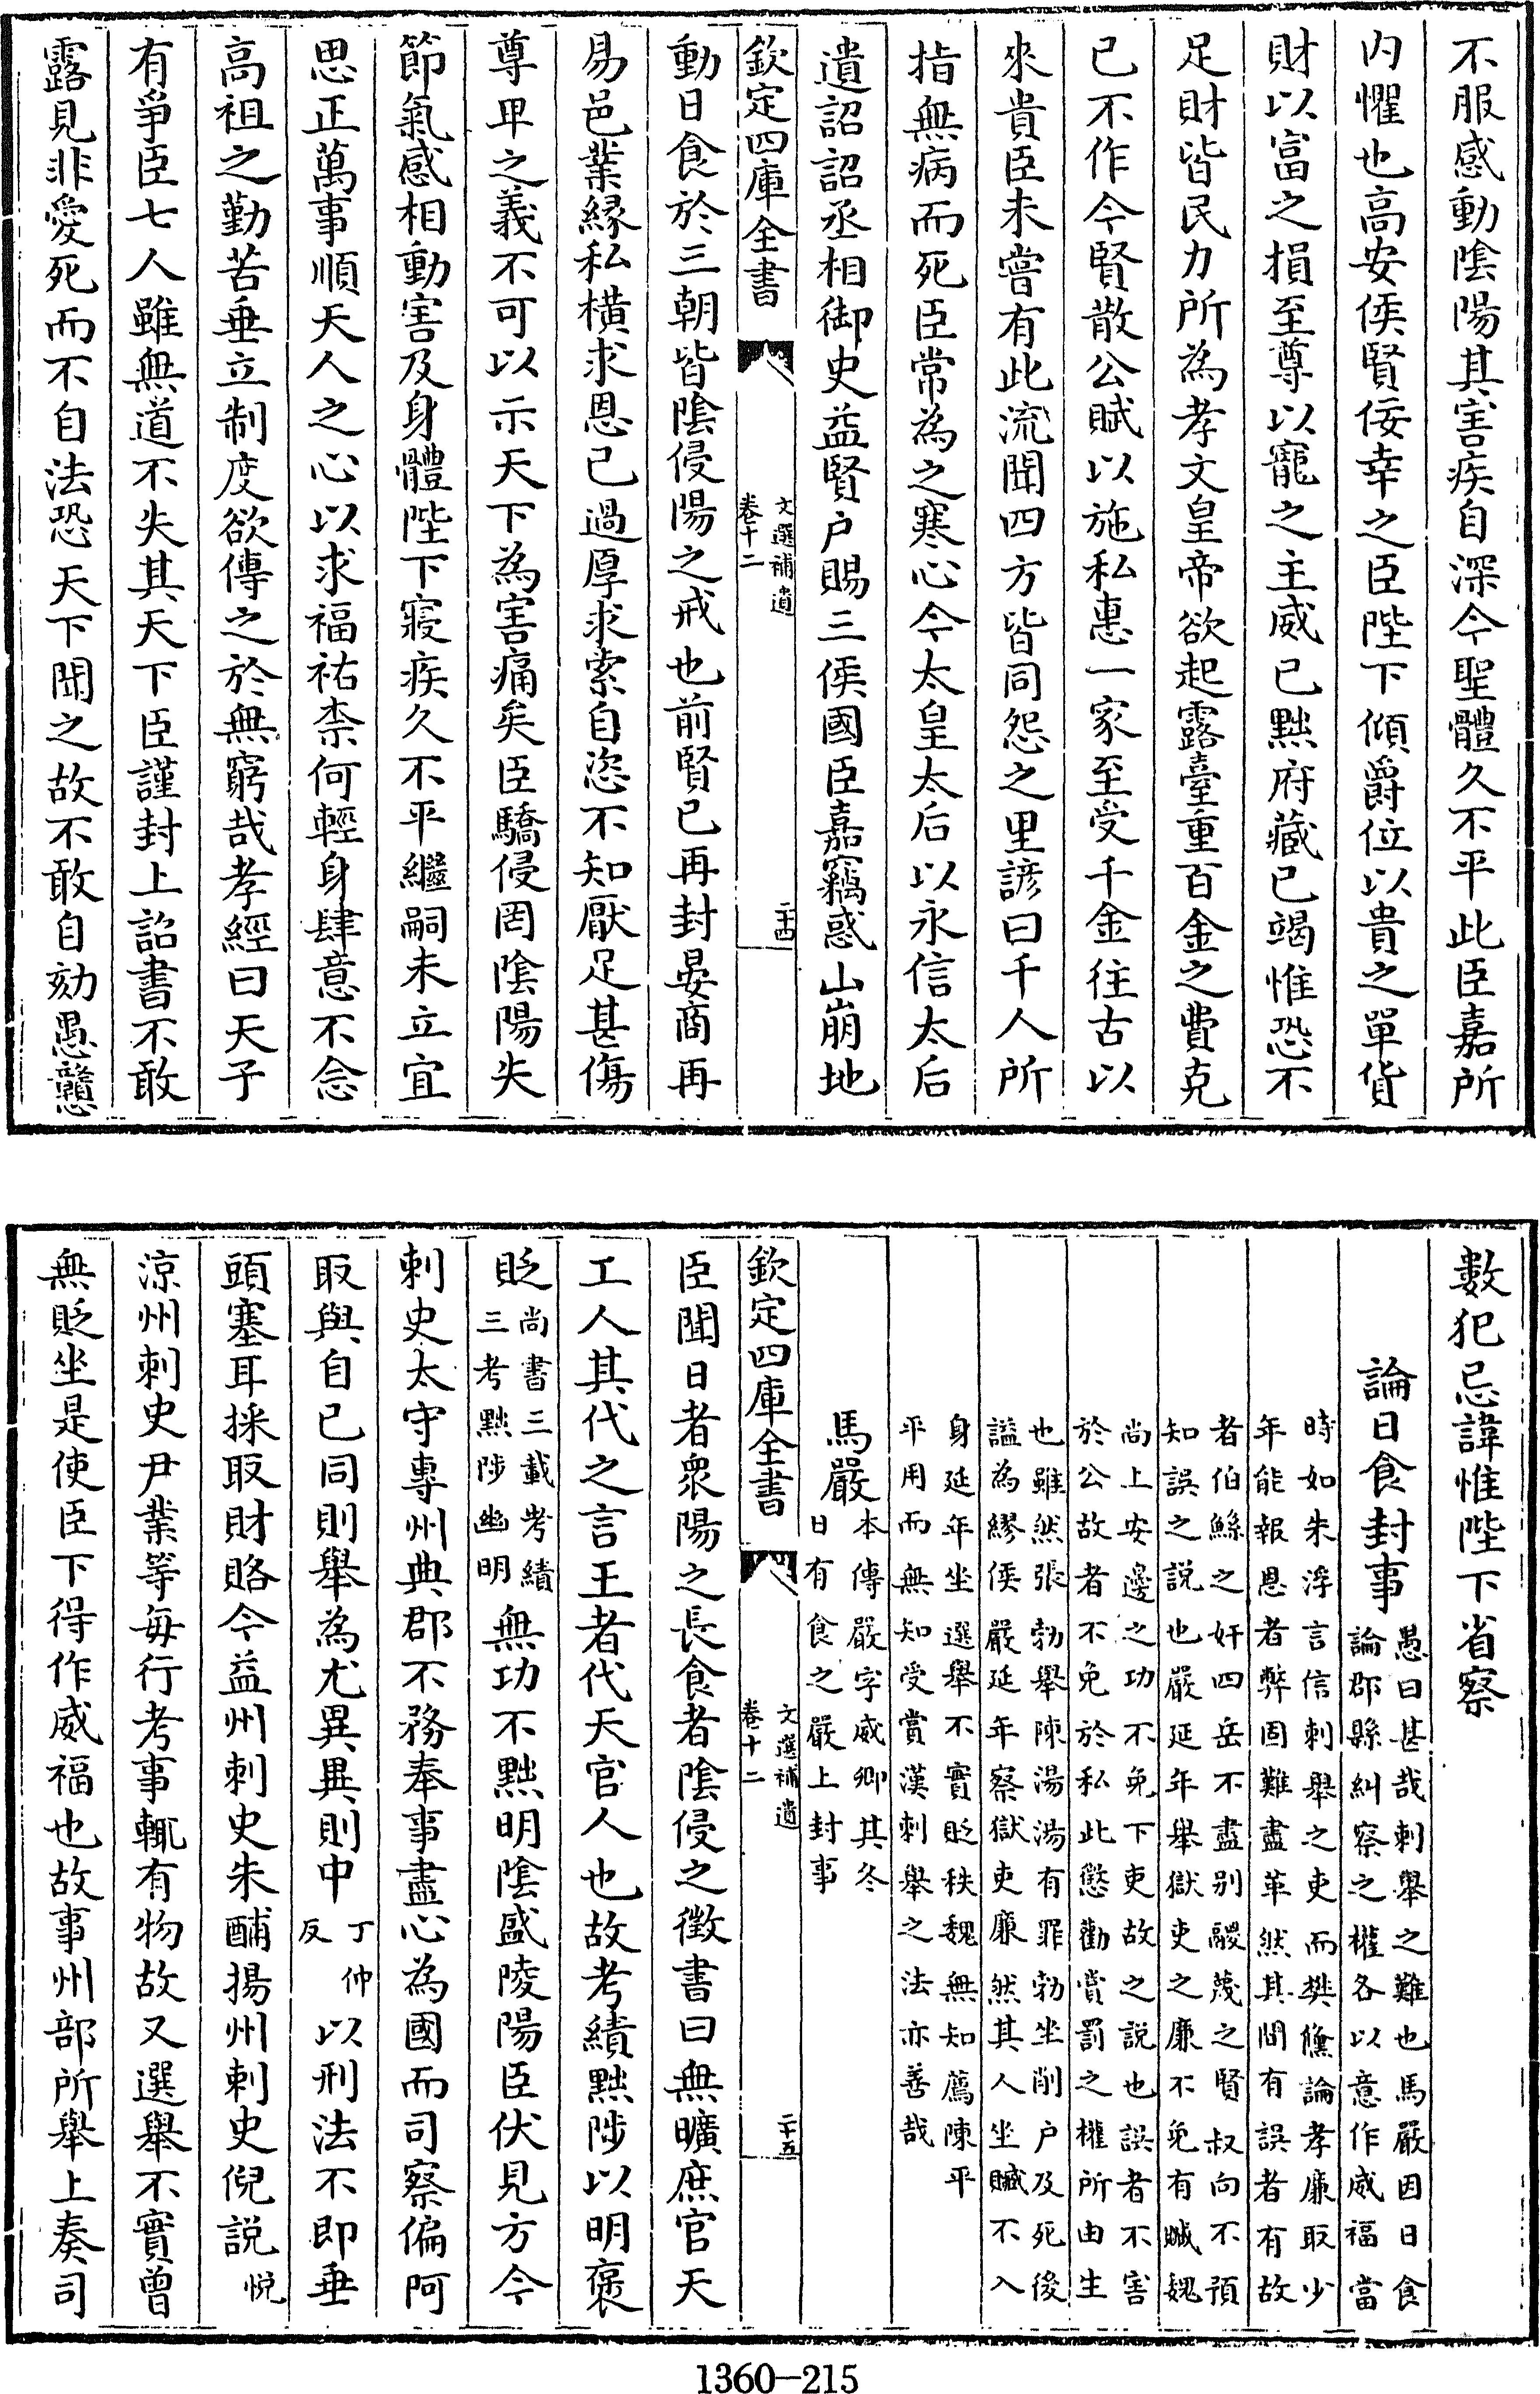 不服感動陰陽其害疾自深今聖體久不平此臣嘉所
内懼也高安侯賢佞幸之臣陛下傾爵位以貴之單貨
財以富之損至尊以寵之主威已黜府藏已竭惟恐不
足財皆民力所為孝文皇帝欲起露臺重百金之費克
已不作今賢散公賦以施私惠一家至受千金往古以
來貴臣未嘗有此流聞四方皆同怨之里諺曰千人所
指無病而死臣常為之寒心今太皇太后以永信太后
遺詔詔丞相御史益賢户賜三侯國臣嘉竊惑山崩地
欽定四庫全書
文選補遺
卷十二
二十四
動日食於三朝皆陰侵陽之戒也前賢已再封晏商再
易邑業緣私橫求恩已過厚求索自恣不知厭足甚傷
尊卑之義不可以示天下為害痛矣臣驕侵罔陰陽失
節氣感相動害及身體陛下寢疾久不平繼嗣未立宜
思正萬事順天人之心以求福祐柰何輕身肆意不念
高祖之勤苦垂立制度欲傳之於無窮哉孝經曰天子
有爭臣七人雖無道不失其天下臣謹封上詔書不敢
露見非愛死而不自法恐天下聞之故不敢自劾愚戇
數犯忌諱惟陛下省察
論日食封事
愚曰甚哉刺舉之難也馬嚴因日食
論郡縣糾察之權各以意作威福當
時如朱浮言信刺舉之吏而樊儵論孝廉取少
年能報恩者弊固難盡革然其間有誤者有故
者伯鯀之奸四岳不盡别鬷蔑之賢叔向不預
知誤之説也嚴延年舉獄吏之廉不免有贓魏
尚上安邊之功不免下吏故之説也誤者不害
於公故者不免於私此懲勸賞罰之權所由生
也雖然張勃舉陳湯湯有罪勃坐削户及死後
謚為繆侯嚴延年察獄吏廉然其人坐贓不入
身延年坐選舉不實貶秩魏無知薦陳平
平用而無知受賞漢刺舉之法亦善哉
馬嚴
本傳嚴字威卿其冬
日有食之嚴上封事
欽定四庫全書
文選補遺
卷十二
二十五
臣聞日者衆陽之長食者陰侵之徵書曰無曠庶官天
工人其代之言王者代天官人也故考績黜陟以明褒
貶尚書三載考績三考黜陟幽明無功不黜明陰盛陵陽臣伏見方今
刺史太守專州典郡不務奉事盡心為國而司察偏阿
取與自已同則舉為尤異異則中丁仲反以刑法不即垂
頭塞耳採取財賂今益州刺史朱酺揚州刺史倪説悦
涼州刺史尹業等每行考事輒有物故又選舉不實曾
無貶坐是使臣下得作威福也故事州部所舉上奏司
1360-215